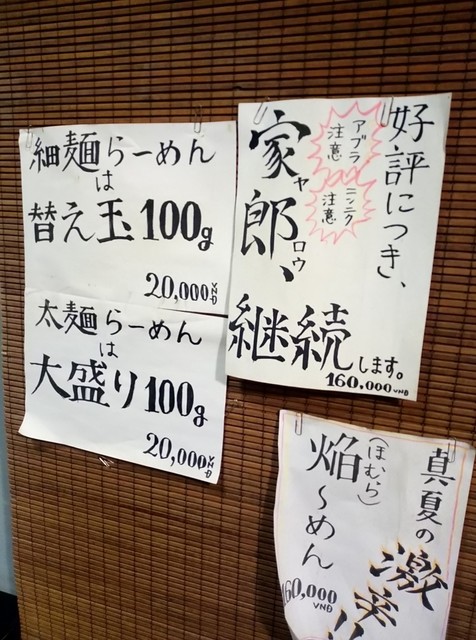 細麺らーめん
は
替え玉100g
20,000VND
太麺らーめん
は
大盛り100g
20,000VND
好評につき、
アブラ
注意
ニンニク
注意
家郎、
ヤロウ
継続します。
160,000VND
真夏の
激辛!!
焔〜めん
(ほむら)
160,000
VND